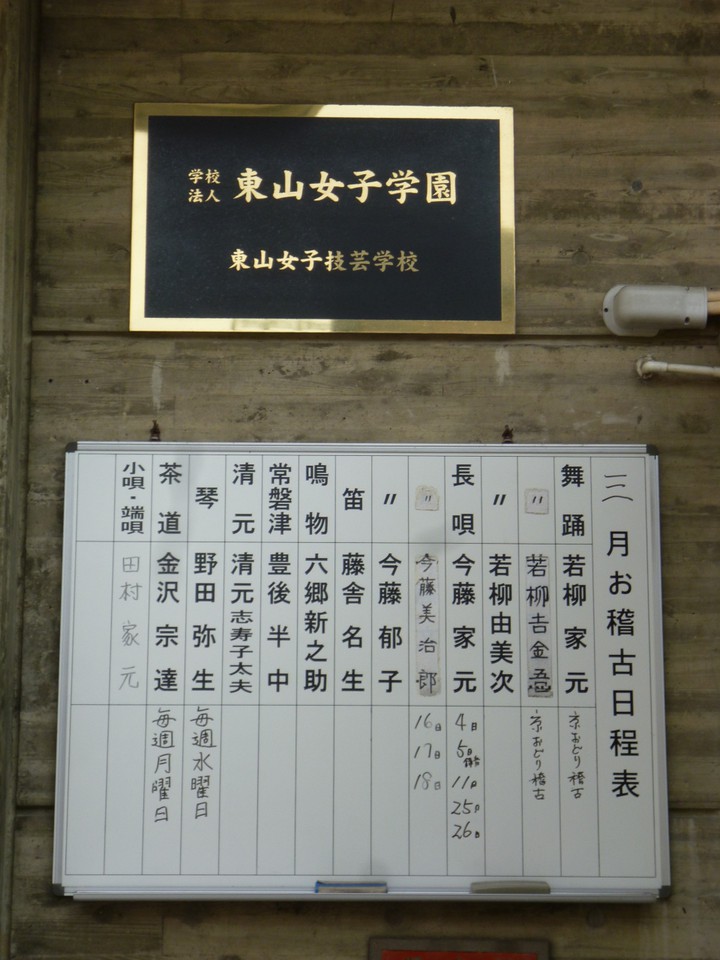 学校法人 東山女子学園
東山女子技芸学校
月お稽古日程表
舞踊 若柳家元 京おどり稽古
〃 若柳吉金吾 京おどり稽古
〃 若柳由美次
長唄 今藤家元 4日 5日 11日 25日 26日
〃 今藤美治郎 16日 17日 18日
〃 今藤郁子
笛 藤舎名生
鳴物 六郷新之助
常磐津 豊後半中
清元 清元志寿子太夫
琴 野田弥生 毎週水曜日
茶道 金沢宗達 毎週月曜日
小唄・端唄 田村家元